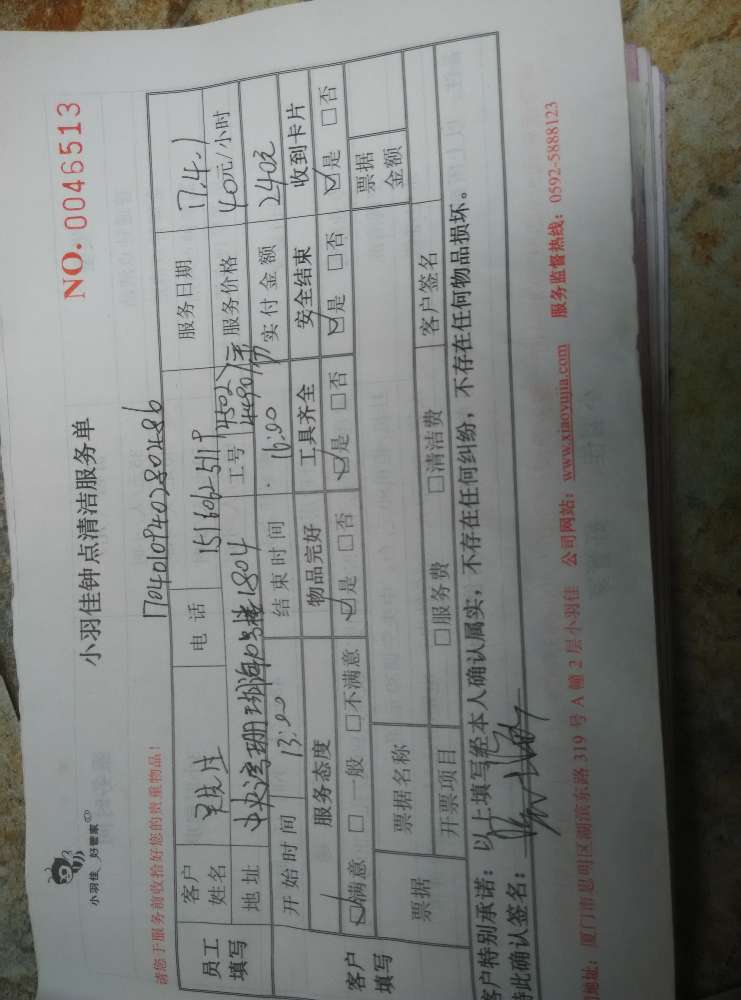 小羽佳 好管家
小羽佳钟点清洁服务单
NO. 0046513
请您于服务前收拾好您的贵重物品!
1704010940280486
员工填写
客户姓名 电话 服务日期 17.4.1
地址 中央湾珊瑚海 1804 工号 服务价格 40元/小时
开始时间 13:00 结束时间 16:00 实付金额
客户填写
服务态度 物品完好 工具齐全 安全结束 收到卡片
☑满意 □一般 □不满意 ☑是 □否 ☑是 □否 ☑是 □否 ☑是 □否
票据 票据名称 票据金额
开票项目 □服务费 □清洁费 客户签名
客户特别承诺:以上填写经本人确认属实,不存在任何纠纷,不存在任何物品损坏。
特此确认签名:
地址:厦门市思明区湖滨东路 319 号 A 幢 2 层小羽佳 公司网站:www.xiaoyujia.com 服务监督热线:0592-5888123